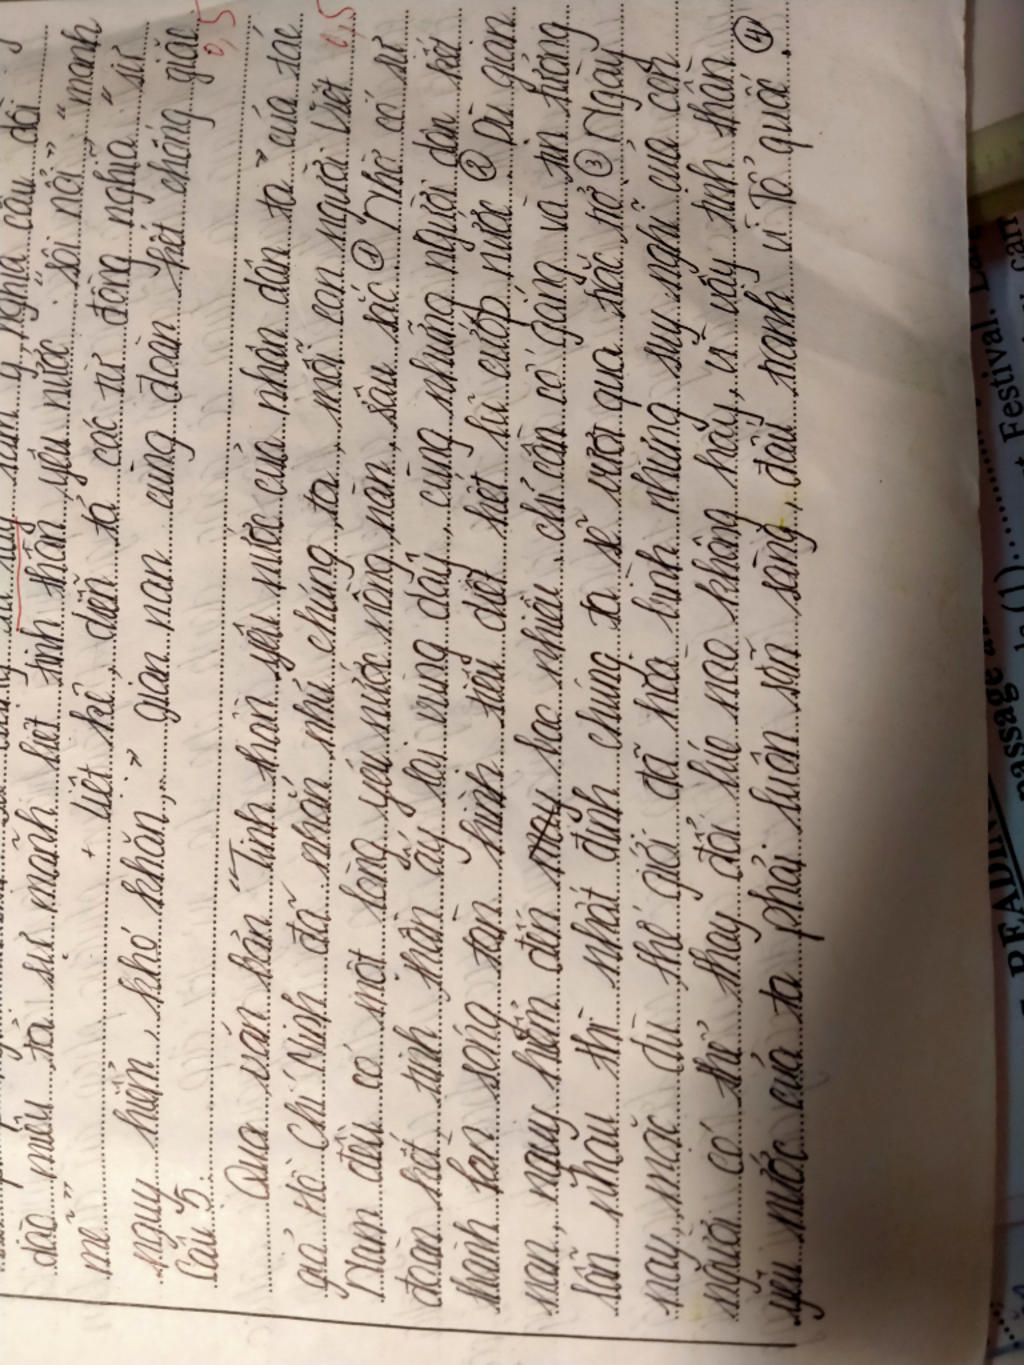 ý nghĩa câu dôi
dào miêu tả sự mãnh liệt tinh thần yêu nước "sôi nổi", "mạnh
mẽ" + liệt kê, diễn tả các từ đồng nghĩa "sự
nguy hiểm, khó khăn," gian nan cùng đoàn kết chống giặc.
0,5
Câu 5.
Qua văn bản "Tinh thần yêu nước của nhân dân ta" của tác
giả Hồ Chí Minh đã nhắn nhủ chúng ta, mỗi con người Việt
0,5
Nam đều có một lòng yêu nước nồng nàn, sâu sắc ① Nhờ có sự
đoàn kết, tinh thần ấy lại vùng dậy, cùng những người dân kết
thành làn sóng tàn hình tiêu diệt hết lũ cướp nước ② Dù gian
nan, nguy hiểm đến may bao nhiêu, chỉ cần cố gắng và tin tưởng
lẫn nhau thì nhất định chúng ta sẽ vượt qua trắc trở ③ Ngày
nay, mặc dù thế giới đã hoà bình nhưng suy nghĩ của con
người có thể thay đổi lúc nào không hay, vì vậy tinh thần
yêu nước của ta phải luôn sẵn sàng, đấu tranh vì Tổ quốc ④.
READING
passage
Festival.
(1)